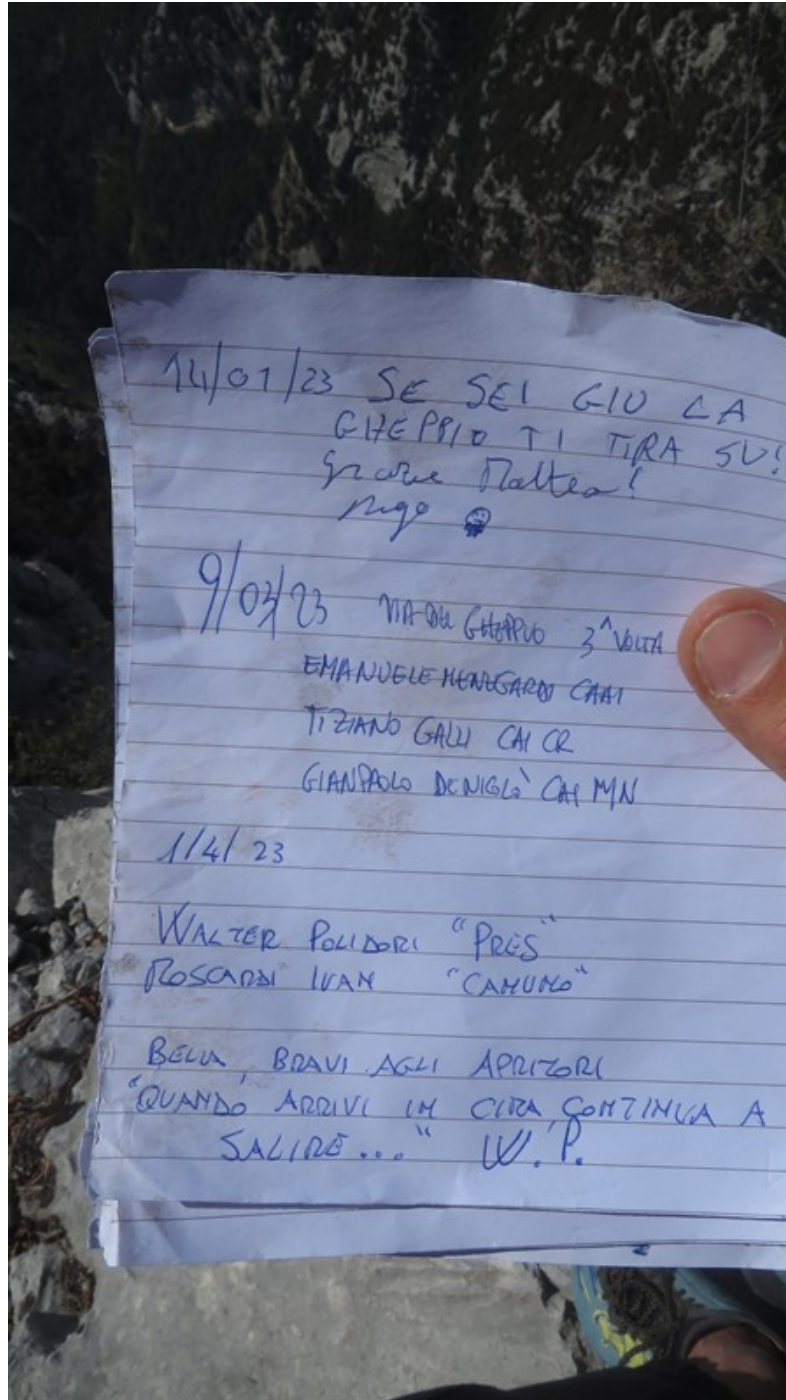 14/01/23 SE SEI GIU LA
GHEPPIO TI TIRA SU!
Grazie Matteo!
9/03/23 VIA DEL GHEPPIO 3^ VOLTA
EMANUELE MENEGARDI CAAI
TIZIANO GALLI CAI CR
GIANPAOLO CAI MN
1/4/23
WALTER POLIDORI "PRES"
IVAN "CAMUNO"
BELLA, BRAVI AGLI APRITORI
"QUANDO ARRIVI IN CIMA, CONTINUA A
SALIRE..." W.P.